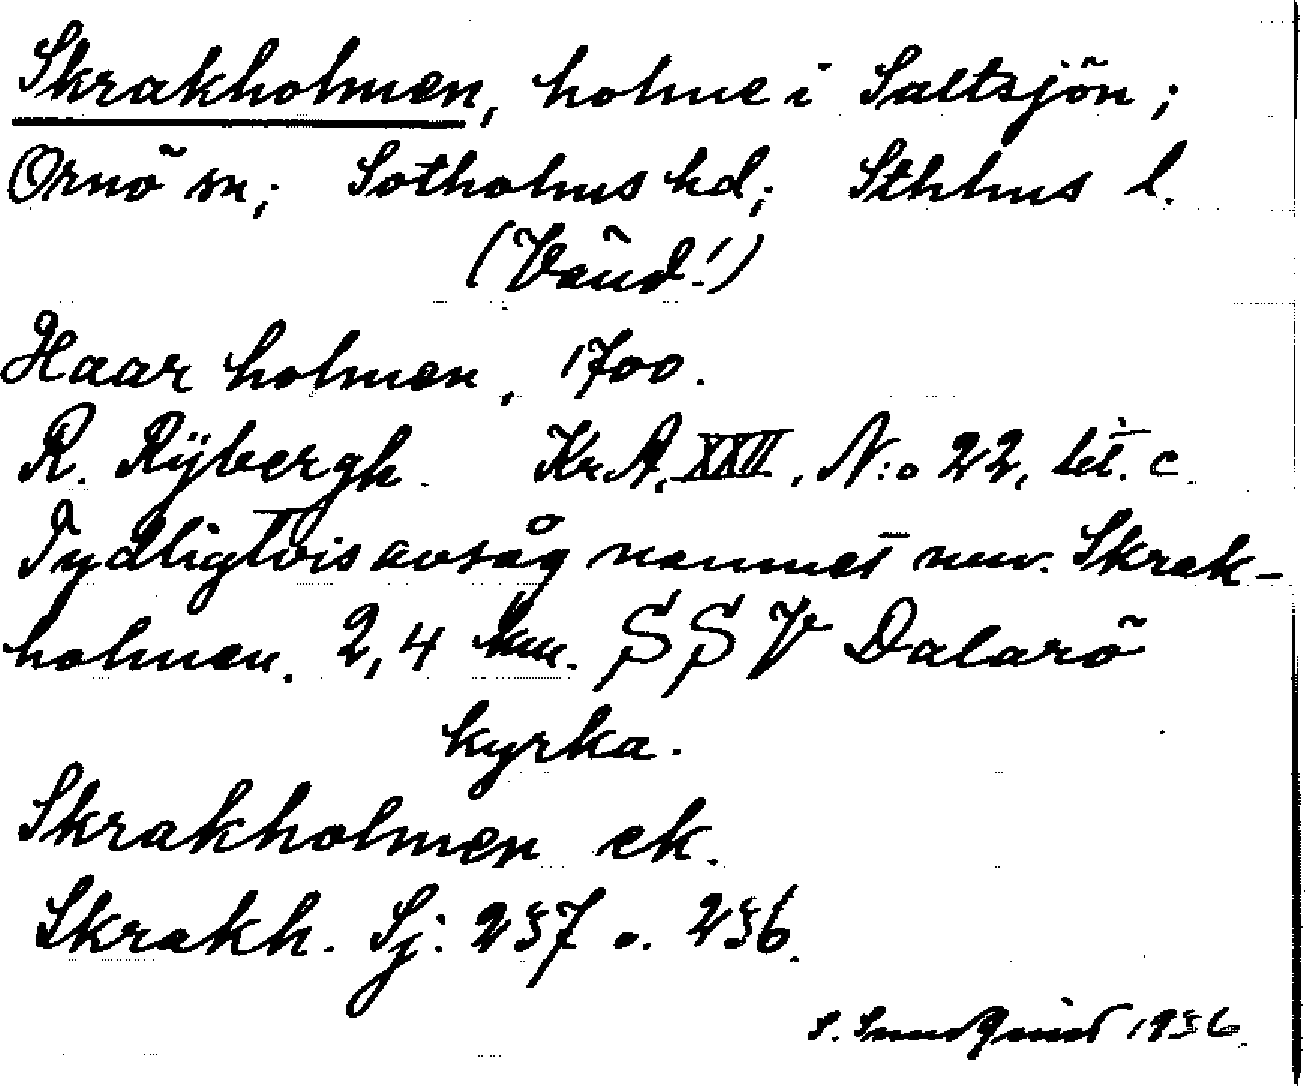 Skrakholmen, holme i Saltsjön;
Ornö sn; Sotholms hd; Sthlms l.
(Vänd!)
Haar holmen, 1700.
R. Rÿbergh. Kr.A. XXII, N:o 22, lit. c.
Tydligtvis avsåg namnet nuv. Skrak-
holmen. 2,4 km. SSV Dalarö
kyrka.
Skrakholmen ek.
Skrakh. Sj: 237 o. 236.
S. 1936.